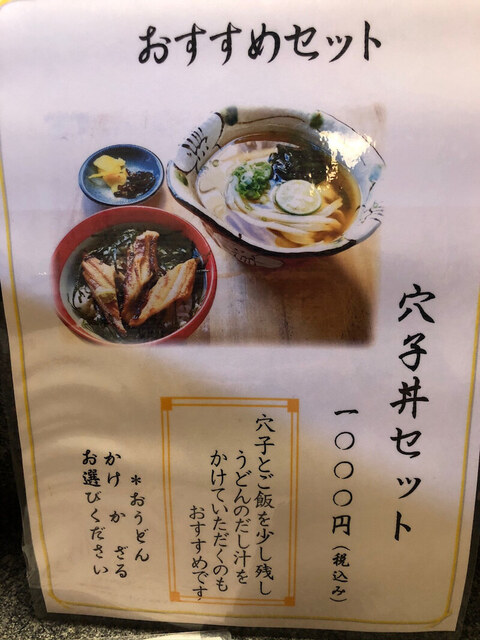 おすすめセット
穴子丼セット
一〇〇〇円(税込み)
穴子とご飯を少し残し
うどんのだし汁を
かけていただくのも
おすすめです
*おうどん
かけ か ざる
お選びください